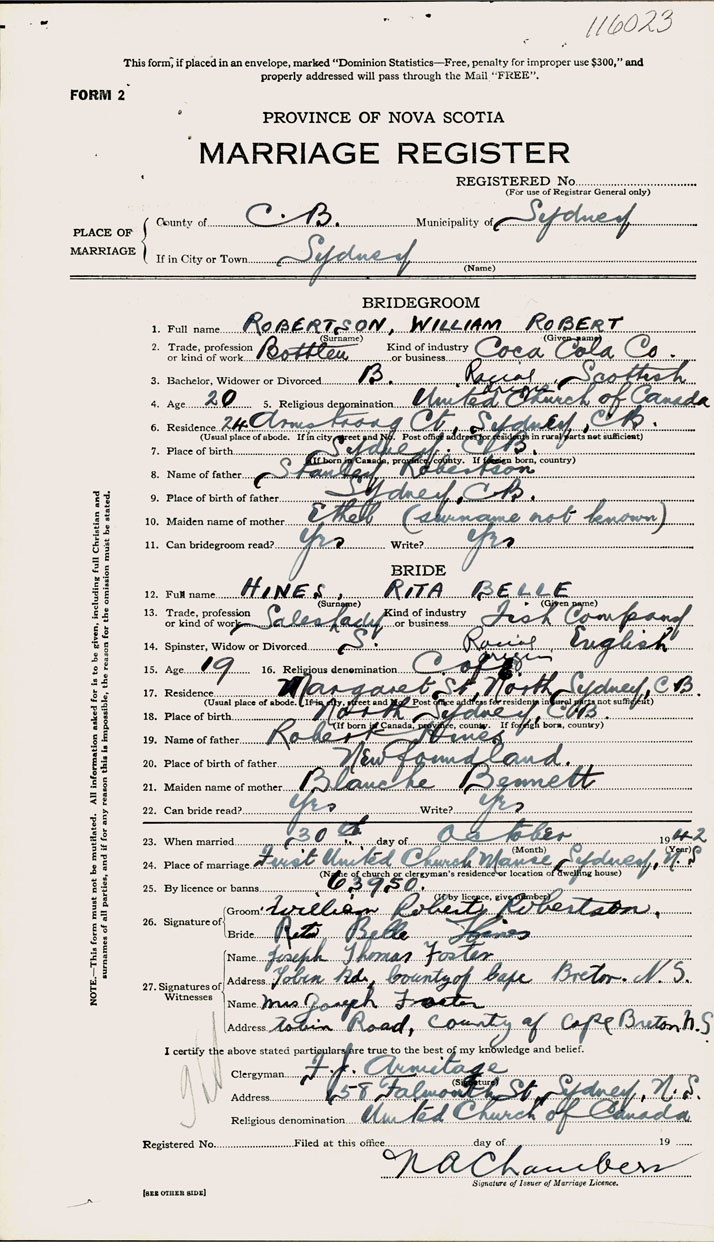 116023
This form, if placed in an envelope, marked "Dominion Statistics—Free, penalty for improper use $300," and
properly addressed will pass through the Mail "FREE".
FORM 2
PROVINCE OF NOVA SCOTIA
MARRIAGE REGISTER
REGISTERED No.
(For use of Registrar General only)
PLACE OF MARRIAGE
County of C. B. Municipality of Sydney
If in City or Town Sydney
(Name)
BRIDEGROOM
1. Full name ROBERTSON, WILLIAM ROBERT
(Surname) (Given name)
2. Trade, profession or kind of work Bottler Kind of industry or business Coca Cola Co.
3. Bachelor, Widower or Divorced B. Racial origin Scottish
4. Age 20 5. Religious denomination United Church of Canada
6. Residence 24 Armstrong Ct., Sydney, C.B.
(Usual place of abode. If in city, street and No. Post office address for residents in rural parts not sufficient)
7. Place of birth Sydney, C.B.
(If born in Canada, province, county. If foreign born, country)
8. Name of father Stanley Robertson
9. Place of birth of father Sydney, C.B.
10. Maiden name of mother Ethel (surname not known)
11. Can bridegroom read? Yrs Write? Yrs
BRIDE
12. Full name HINES, RITA BELLE
(Surname) (Given name)
13. Trade, profession or kind of work Saleslady Kind of industry or business Fish Company
14. Spinster, Widow or Divorced S. Racial origin English
15. Age 19 16. Religious denomination C of E.
17. Residence Margaret St., North Sydney, C.B.
(Usual place of abode. If in city, street and No. Post office address for residents in rural parts not sufficient)
18. Place of birth North Sydney, C.B.
(If born in Canada, province, county. If foreign born, country)
19. Name of father Robert Hines
20. Place of birth of father Newfoundland.
21. Maiden name of mother Blanche Bennett
22. Can bride read? Yrs Write? Yrs
23. When married 30th day of October 1942
(Month) (Year)
24. Place of marriage First United Church Manse, Sydney, N.S
(Name of church or clergyman's residence or location of dwelling house)
25. By licence or banns 63950.
(If by licence, give number)
26. Signature of
Groom William Robert Robertson.
Bride Rita Belle Hines
27. Signatures of Witnesses
Name Joseph Thomas Foster
Address Tobin Rd, County of Cape Breton. N.S.
Name Mrs Joseph Foster
Address Tobin Road, County of Cape Breton N.S
I certify the above stated particulars are true to the best of my knowledge and belief.
Clergyman F. J. Armitage
(Signature)
Address 158 Falmouth St., Sydney, N.S.
Religious denomination United Church of Canada
Registered No. Filed at this office day of 19
N A Chambers
Signature of Issuer of Marriage Licence.
[SEE OTHER SIDE]
NOTE.—This form must not be mutilated. All information asked for is to be given, including full Christian and
surnames of all parties, and if for any reason this is impossible, the reason for the omission must be stated.